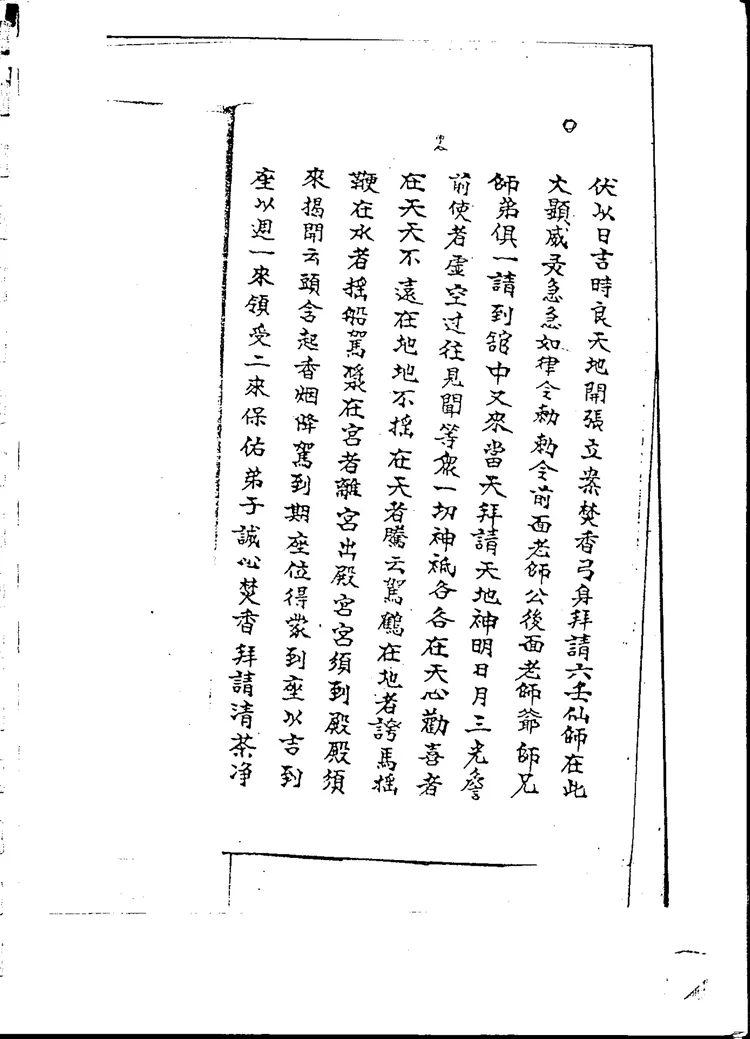 伏以日吉時良天地開張立案焚香弓身拜請六壬仙師在此
大顯威灵急急如律令勅勅令前面老師公後面老師爺師兄
師弟俱一請到舘中又來當天拜請天地神明日月三光詹
前使者虛空过往見聞等眾一切神祇各各在天心勸喜者
在天天不遠在地地不搖在天者騰云駕鶴在地者誇馬搖
鞭在水者搖船駕槳在宮者離宮出殿宮宮須到殿殿須
來揭開云頭含起香烟降駕到期座位得蒙到座以吉到
座以週一來領受二來保佑弟子誠心焚香拜請清茶净